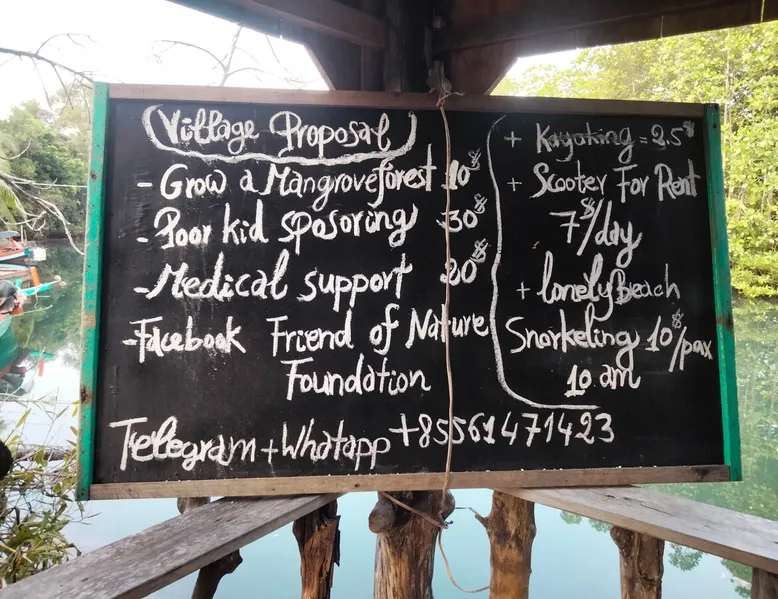 Village Proposal
- Grow a Mangrove forest 10$
- Poor kid sposoring 30$
- Medical support 20$
- Facebook Friend of Nature
Foundation
+ Kayaking = 2.5$
+ Scooter For Rent
7$/day
+ lonely Beach
Snorkeling 10$/pax
10 am
Telegram + Whatapp +85561471423